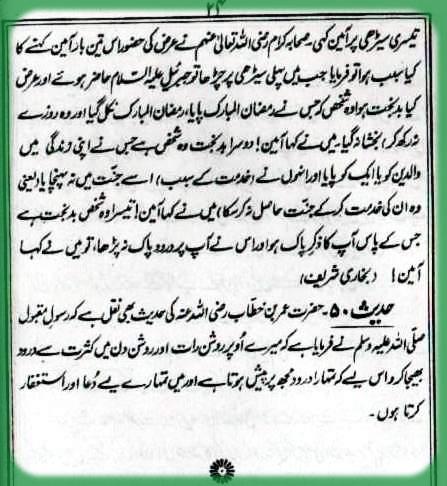 ۲۴
تیسری سیڑھی پر آمین کہی۔ صحابہ کرام رضی اللہ تعالیٰ عنہم نے عرض کی حضور اس تین بار آمین کہنے کا
کیا سبب ہوا تو فرمایا جب میں پہلی سیڑھی پر چڑھا تو جبریل علیہ السلام حاضر ہوئے اور عرض
کیا بدبخت ہوا وہ شخص کہ جس نے رمضان المبارک پایا، رمضان المبارک نکل گیا اور وہ روزے
نہ رکھ کر بخشا نہ گیا۔ میں نے کہا آمین! دوسرا بدبخت وہ شخص ہے جس نے اپنی زندگی میں
والدین کو یا ایک کو پایا اور انہوں نے (خدمت کے سبب) اسے جنت میں نہ پہنچایا (یعنی
وہ ان کی خدمت کر کے جنت حاصل نہ کر سکا) میں نے کہا آمین! تیسرا وہ شخص بدبخت ہے
جس کے پاس آپ کا ذکر پاک ہوا اور اس نے آپ پر درود پاک نہ پڑھا، تو میں نے کہا
آمین! (بخاری شریف)
حدیث ۵۰۔ حضرت عمر بن خطاب رضی اللہ عنہ کی حدیث بھی نقل ہے کہ رسول مقبول
صلی اللہ علیہ وسلم نے فرمایا ہے کہ میرے اُوپر روشن رات اور روشن دن میں کثرت سے درود
بھیجا کرو اس لیے کہ تمہارا درود مجھ پر پیش ہوتا ہے اور میں تمہارے لیے دُعا اور استغفار
کرتا ہوں۔